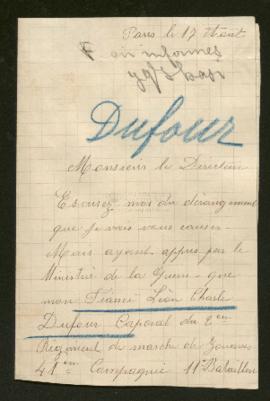 Paris le 17 Aout
on informes
Dufour
Monsieur le Directeur
Escusez moi du dérangement
que je vais vous causer
Mais ayant appris par le
Ministère de la Guerre que
mon Fiancé Léon Charle
Dufour Caporal du 2em
Régiment de marche de Zouaves
41em Compagnie 11e Bataillon